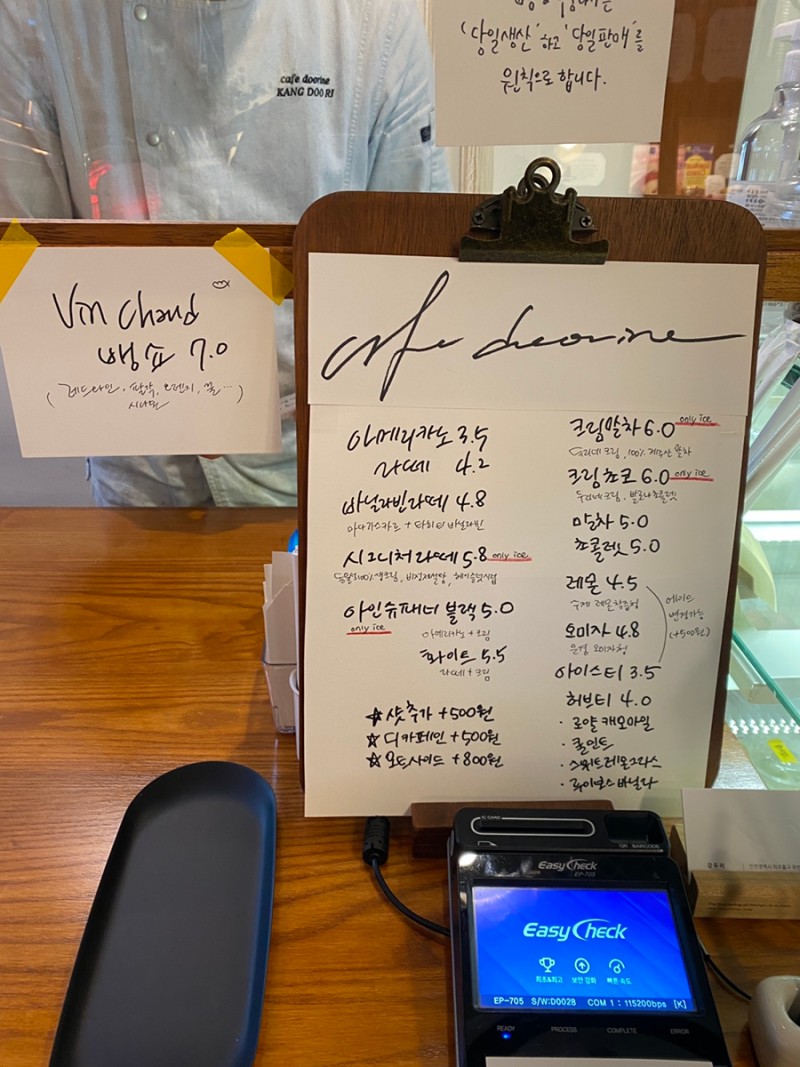 '당일생산'하고 '당일판매'를
원칙으로 합니다.
cafe doorine
KANG DOORI
Vin Chaud
뱅쇼 7.0
(레드와인, 팔각, 오렌지, 꿀...
시나몬)
cafe doorine
아메리카노 3.5
라떼 4.2
바닐라빈라떼 4.8
마다가스카르 + 타히티 바닐라빈
시그니처라떼 5.8 only ice
동물성100% 생크림, 비정제설탕, 헤이즐넛시럽
아인슈패너 블랙 5.0
only ice
아메리카노 + 크림
화이트 5.5
라떼 + 크림
☆ 샷추가 +500원
☆ 디카페인 +500원
☆ 오트사이드 +800원
크림말차 6.0 only ice
두리네 크림, 100% 제주산 말차
크림초코 6.0 only ice
두리네 크림, 발로나초콜렛
말차 5.0
초콜렛 5.0
레몬 4.5
수제 레몬청
오미자 4.8
문경 오미자청
아이스티 3.5
에이드
변경가능
(+500원)
허브티 4.0
· 로얄캐모마일
· 쿨민트
· 스위트레몬그라스
· 루이보스바닐라
IC CARD
QR BARCODE
EasyCheck
EP-705
EasyCheck
최초&최고 보안 강화 빠른 속도
EP-705 S/W:D0028 COM 1 : 115200bps [K]
READY PROCESS COMPLETE ERROR
강두리